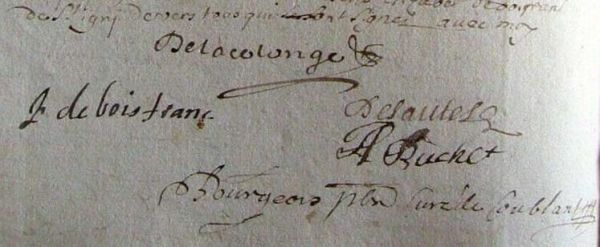 de st Igny de vers tous qui sont signez avec moy
Delacolonge
J de boisfranc
Desautels
A Buchet
Bourgeois pbre Curé de Coublant